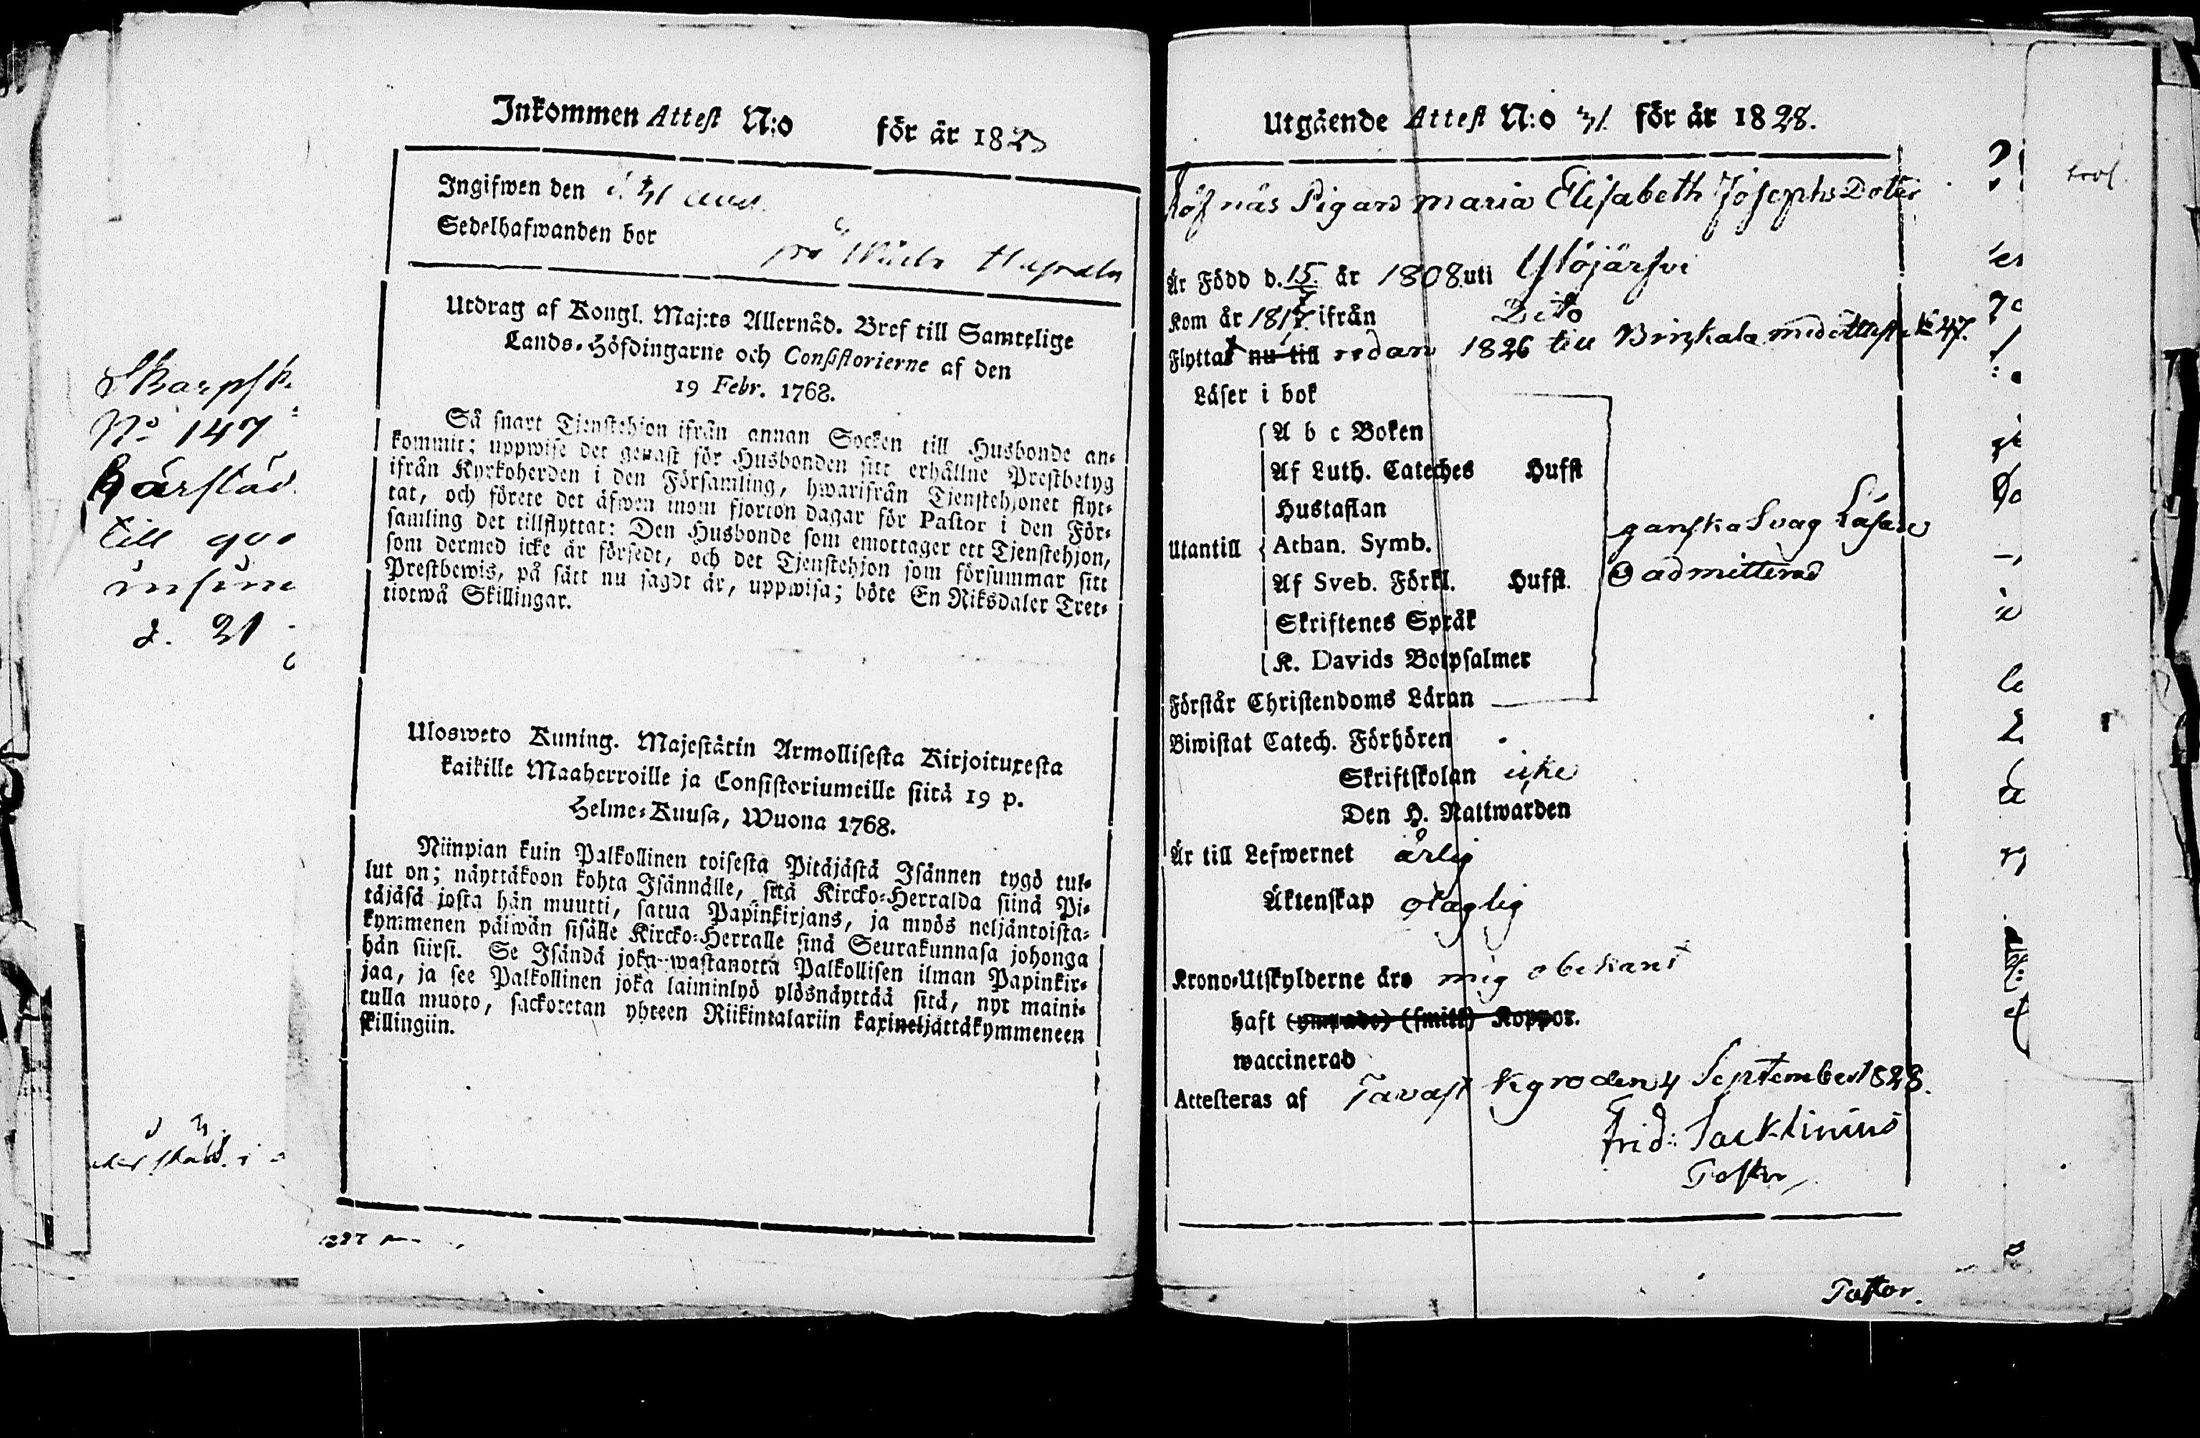 Inkommen Attest N:o för år 182
Ingifwen den
Sedelhafwanden bor på
Utdrag af Kongl. Maj:ts Allernåd. Bref till Samtelige
Lands-Höfdingarne och Consistorierne af den
19 Febr. 1768.
Så snart Tjenstehjon ifrån annan Socken till Husbonde an-
kommit; uppwise det genast för Husbonden sitt erhållne Prestbetyg
ifrån Kyrkoherden i den Församling, hwarifrån Tjenstehjonet flyt-
tat, och förete det äfwen inom fjorton dagar för Pastor i den För-
samling det tillflyttat: Den Husbonde som emottager ett Tjenstehjon,
som dermed icke är försedt, och det Tjenstehjon som försummar sitt
Prestbewis, på sätt nu sagdt är, uppwisa; böte En Riksdaler Tret-
tiotwå Skillingar.
Ulosweto Kuning. Majestätin Armollisesta Kirjoituxesta
kaikille Maaherroille ja Consistoriumeille siitä 19 p.
Helme-Kuusa, Wuona 1768.
Niinpian kuin Palkollinen toisesta Pitäjästä Isännen tygö tul-
lut on; näyttäkoon kohta Isännälle, sitä Kircko-Herralda siinä Pi-
täjäsä josta hän muutti, satua Papinkirjans, ja myös neljäntoista-
kymmenen päiwän sisälle Kircko-Herralle sinä Seurakunnasa johonga
hän siirsi. Se Isändä joka wastanotta Palkollisen ilman Papinkir-
jaa, ja see Palkollinen joka laiminlyö ylösnäyttää sitä, nyt maini-
tulla muoto, sackotetan yhteen Riikintalariin kaxineljättäkymmeneen
skillingiin.
No 147
till
d. 21
Utgående Attest N:o 31 för år 1828.
Pigan Maria Elisabeth Josephs Doter
Är Född d. 15 år 1808 uti Ylöjärfvi
Kom år 1817 ifrån Dito
Flyttat nu till redan 1826 till med No 47.
Läser i bok
A b c Boken
Af Luth. Cateches Hufst
Hustaflan
Utantill Athan. Symb. ganska Svag Läsare
Af Sveb. Förkl. Hufst. Oadmitterad
Skriftenes Språk
K. Davids Botpsalmer
Förstår Christendoms Läran
Biwistat Catech. Förhören
Skriftskolan icke
Den H. Nattwarden
Är till Lefwernet ärlig
Äktenskap oläglig
Krono-Utskylderne äro mig obekant
haft Koppor.
waccinerad
Attesteras af Tavastkyro den 4 September 1828.
Frid: Sacklinius
Pastor
Pastor.